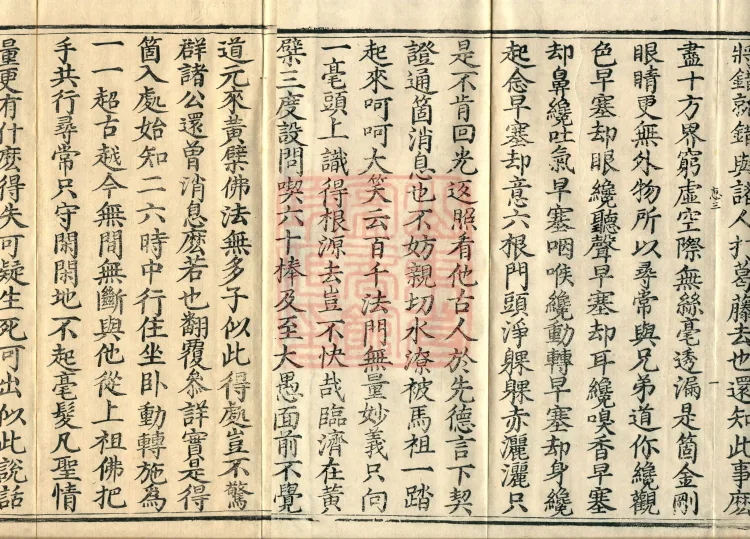 將錯就錯與諸人打葛藤去也還知此事麽
惠三
一
盡十方界窮虛空際無絲毫透漏是箇金剛
眼睛更無外物所以尋常與兄弟道你纔觀
色早塞却眼纔聽聲早塞却耳纔嗅香早塞
却鼻纔吐氣早塞咽喉纔動轉早塞却身纔
起念早塞却意六根門頭淨躶躶赤灑灑只
是不肯回光返照看他古人於先德言下契
證通箇消息也不妨親切水潦被馬祖一踏
起來呵呵大笑云百千法門無量妙義只向
一毫頭上識得根源去豈不快哉臨濟在黃
檗三度設問喫六十棒及至大愚面前不覺
道元來黃檗佛法無多子似此得處豈不驚
群諸公還曾消息麽若也翻覆叅詳實是得
箇入處始知二六時中行住坐卧動轉施爲
一一超古越今無間無斷與他從上祖佛把
手共行尋常只守閑閑地不起毫髮凡聖情
量更有什麽得失可疑生死可出似此說話